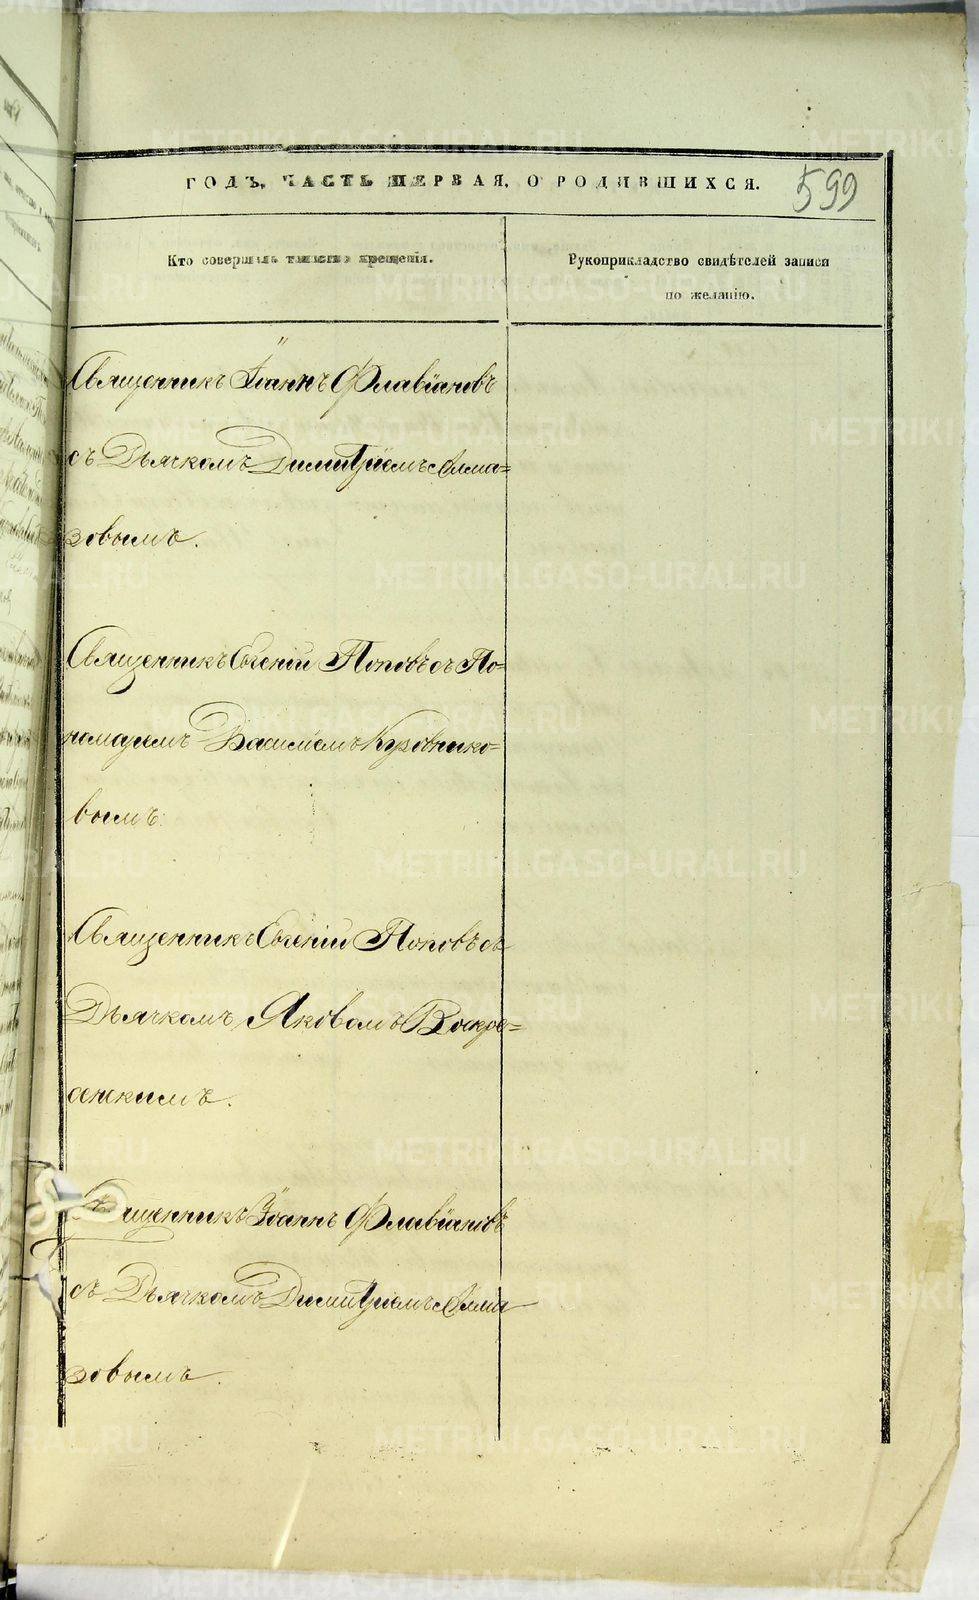 ГОДЪ, ЧАСТЬ ПЕРВАЯ, О РОДИВШИХСЯ.
599
Кто совершалъ таинство крещенія.
Рукоприкладство свидѣтелей записи
по желанію.
Священникъ Іоаннъ Флавіановъ
съ Дьячкомъ Димитріемъ Алма=
зовымъ.
Священникъ Евгеній Поповъ съ По=
номаремъ Василіемъ Куровнико=
вымъ.
Священникъ Евгеній Поповъ съ
Дьячкомъ Яковомъ Воскре=
сенскимъ.
Священникъ Іоаннъ Флавіановъ
съ Дьячкомъ Димитріемъ Алма
зовымъ.
METRIKI.GASO-URAL.RU